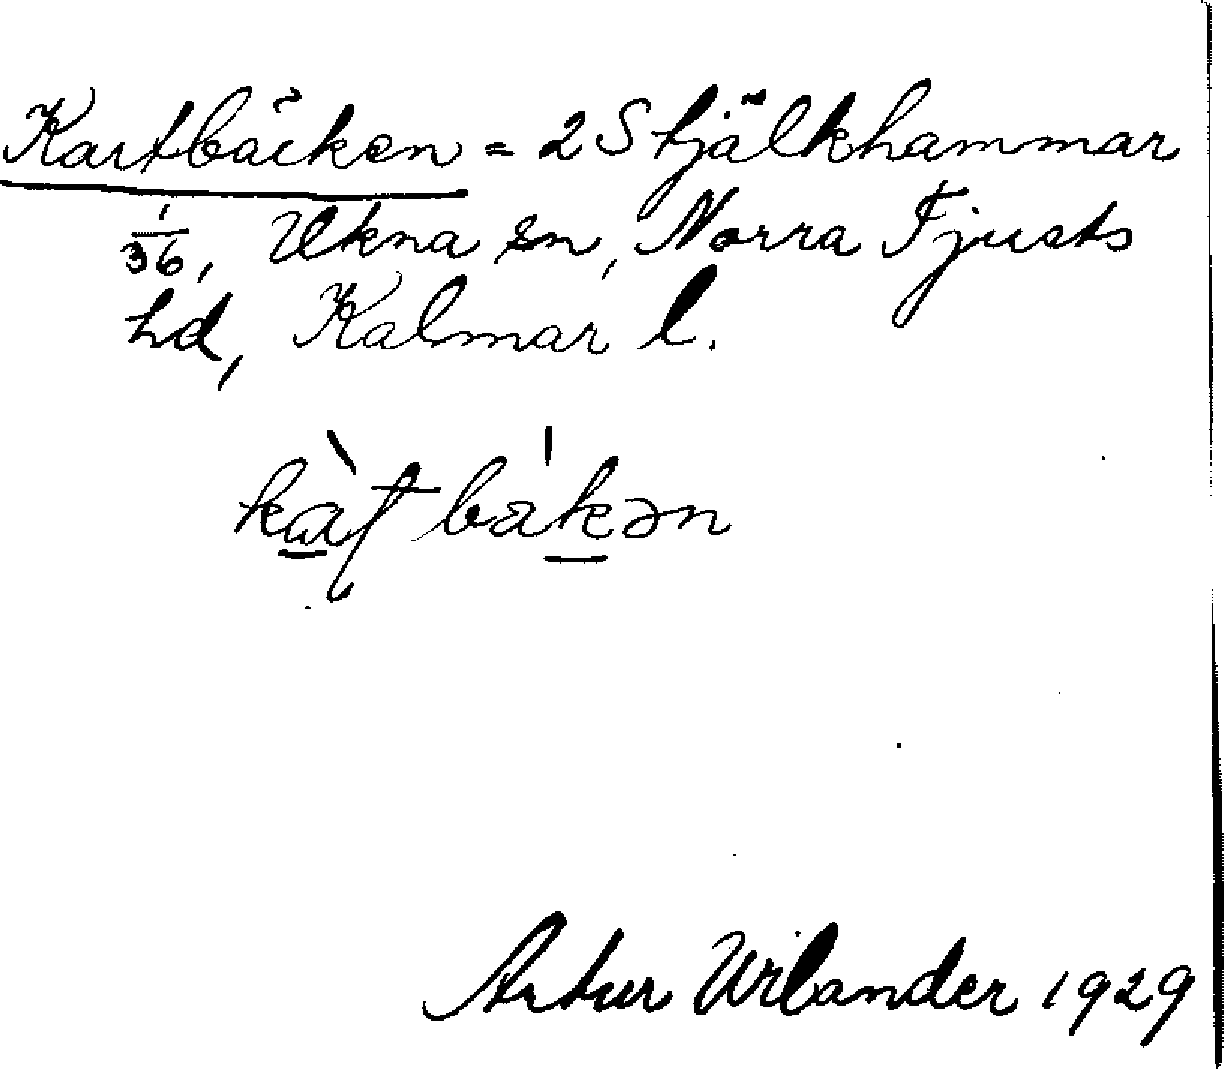 Kartbäcken = 2 Stjälkhammar
1/36, Ukna sn, Norra Tjusts
hd, Kalmar l.
Artur Wilander 1929